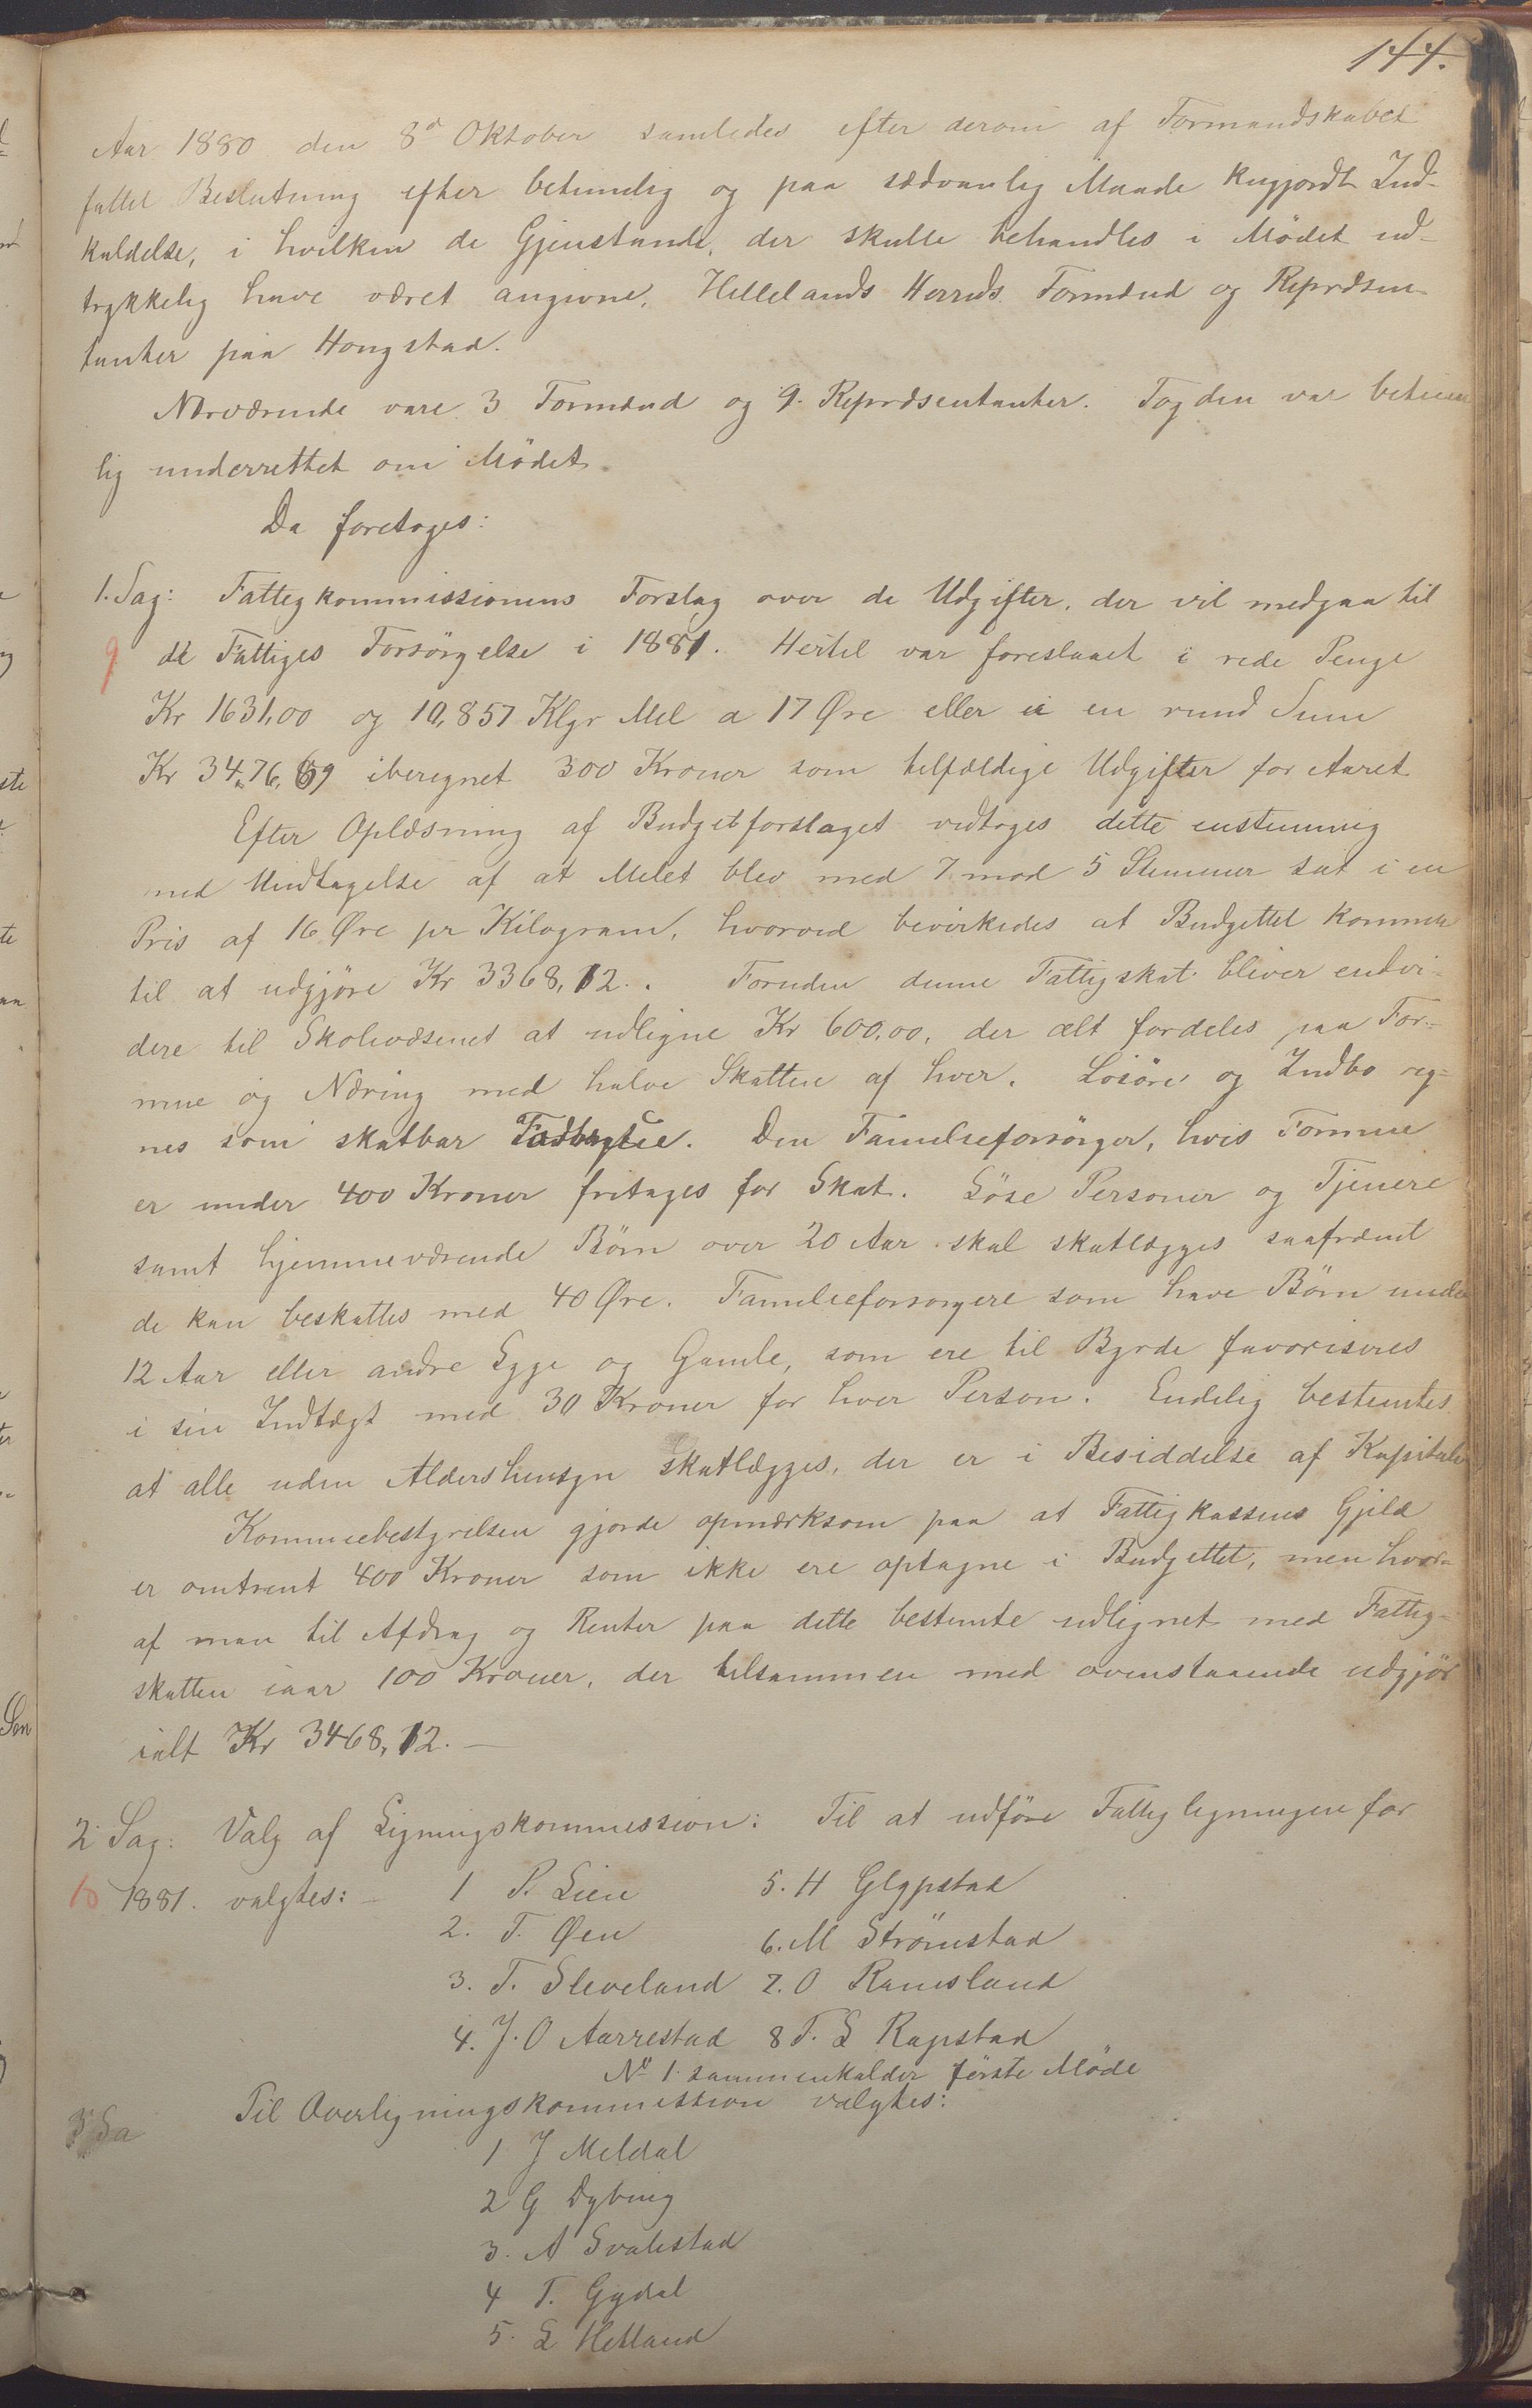 144.
Aar 1880 den 8d Oktober samledes efter derom af Formandskabet
fattet Beslutning efter betimelig og paa sædvanlig Maade kngjordt Ind-
kaldelse, i hvilken de Gjenstande, der skulle behandles i Mødet ud-
trykkelig have været angivne, Hellelands Herreds Formænd og Repræsen-
tanter paa Hougstad.
Nærværende vare 3 Formænd og 9 Repræsentanter. Fogden var betime
lig underrettet om Mødet.
Da foretoges:
1. Sag: Fattigkommissionens Forslag over de Udgifter, der vil medgaa til
9 de Fattiges Forsørgelse i 1881. Hertil var foreslaaet i rede Penge
Kr 1631,00 og 10,857 Klgr Mel a 17 Øre eller i en rund Sum
Kr 3476,69 iberegnet 300 Kroner som tilfældige Udgifter for Aaret
Efter Oplæsning af Budgetforslaget vedtoges dette enstemmig
med Undtagelse af at Melet blev med 7 mod 5 Stemmer sat i en
Pris af 16 Øre pr Kilogram, hvorved bevirkedes at Budgettet kommer
til at udgjøre Kr 3368,12. Foruden denne Fattigskat bliver endvi-
dere til Skolevæsenet at udligne Kr 600,00, der alt fordeles paa For-
mue og Næring med halve Skatten af hver. Løsøre og Indbo reg-
nes som skatbar. Den Familieforsørger, hvis Formue
er under 400 Kroner fritages for Skat. Løse Personer og Tjenere
samt hjemmeværende Børn over 20 Aar skal skatlægges saafremt
de kan beskattes med 40 Øre. Familieforsørgere som have Børn under
12 Aar eller andre Syge og Gamle, som ere til Byrde favoriseres
i sin Indtægt med 30 Kroner for hver Person. Endelig bestemtes
at alle uden Aldershensyn skatlægges, der er i Besiddelse af Kapitaler
Kommuebestyrelsen gjorde opmærksom paa at Fattigkassens Gjeld
er omtrent 400 Kroner som ikke ere optagne i Budgettet, men hvor-
af man til Afdrag og Renter paa dette bestemte udlignet med Fattig-
skatten iaar 100 Kroner, der tilsammen med ovenstaaende udgjør
ialt Kr 3468,12.
2 Sag: Valg af Ligningskommission: Til at udføre Fattigligningen for
10 1881. valgtes:
1 P. Lien 5. H Glypstad
2. T. Øen 6. M Strömstad
3. T. Sleveland 7. O Ramsland
4. J. O Aarrestad 8 T. L Rapstad
No 1. sammenkalder første Møde
3 Sa Til Overligningskommission valgtes:
1 J Meldal
2 G Dybing
3. A Svalestad
4 T. Gydal
5. L Hetland